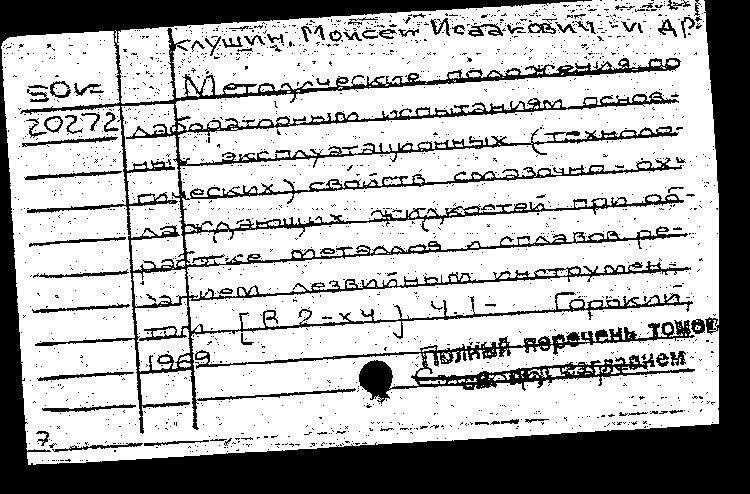 Клушин, Моисей Исаакович и др.
SOv=
Методические положения по
20272
лабораторным испытаниям основ-
ных эксплуатационных (техноло-
гических) свойств смазочно-ох-
лаждающих жидкостей при об-
работке металлов и сплавов ре-
занием лезвийным инструмен-
том. [В 2-х ч.] Ч.1- Горький,
1969
Полный перечень томов
см. под заглавием
7.